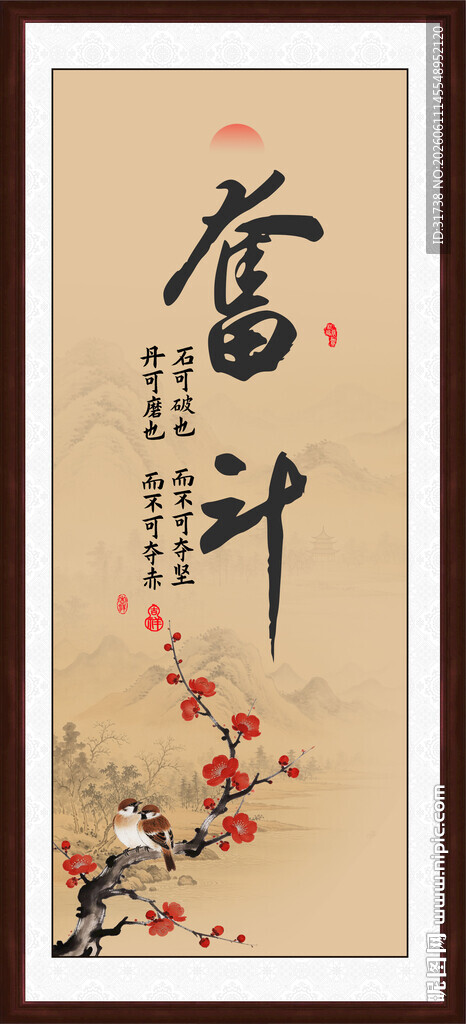 奋斗
石可破也 而不可夺坚
丹可磨也 而不可夺赤
吉祥
ID:31738 NO:20260611145548952120
昵图网 www.nipic.com